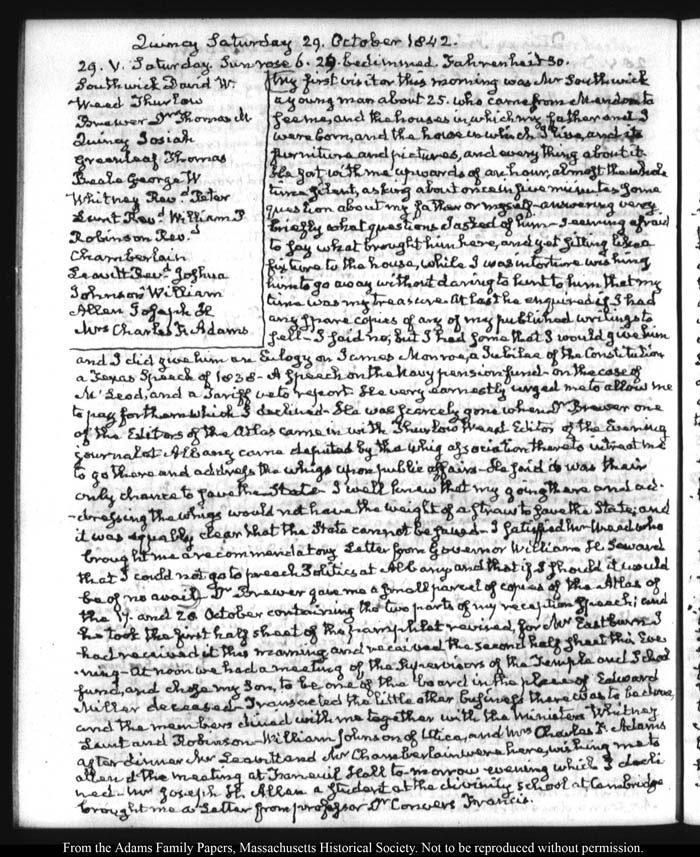 Quincy Saturday 29. October 1842.
29. V. Saturday Sun rose 6.29. bedimmed. Fahrenheit 30.
Southwick David W.
Weed Thurlow
Brewer Dr. Thomas M
Quincy Josiah
Greenleaf Thomas
Beale George W
Whitney Revd. Peter
Lunt Revd. William P
Robinson Revd.
Chamberlain
Leavitt Revd. Joshua
Johnson William
Allen Joseph H
Mrs Charles F. Adams
My first visitor this morning was Mr Southwick
a young man about 25. who came from Mendon to
see me, and the houses in which my father and I
were born, and the house in which I live, and its
furniture and pictures, and every thing about it
He sat with me upwards of an hour, almost the whole
time silent, asking about once in five minutes some
question about my father or myself—answering very
briefly what questions I asked of him—seeming afraid
to say what brought him here, and yet sitting like a
fixture to the house, while I was in torture wishing
him to go away without daring to hint to him that my
time was my treasure. At last he enquired if I had
any spare copies of any of my published writings to
sell—I said no; but I had some that I would give him
and I did give him an Eulogy on James Monroe, a Jubilee of the Constitution
a Texas Speech of 1838—A Speech on the Navy pension fund—on the case of
McLeod, and a Tariff veto report. He very earnestly urged me to allow me
to pay for them which I declined—He was scarcely gone when Dr Brewer one
of the Editors of the Atlas came in with Thurlow Weed Editor of the Evening
journal at Albany came deputed by the whig association there to intreat me
to go there and address the whigs upon public affairs—He said it was their
only chance to save the State—I well knew that my going there and ad-
-dressing the whigs would not have the weight of a straw to save the State; and
it was equally clear that the State cannot be saved—I satisfied Mr Weed who
brought me a recommendatory Letter from Governor William H. Seward
that I could not go to preach Politics at Albany and that if I should it would
be of no avail. Dr Brewer gave me a small parcel of copies of the Atlas of
the 19. and 20 October containing the two parts of my reception Speech; and
he took the first half sheet of the pamphlet revised, for Mr Eastburn I
had received it this morning, and received the second half sheet this Eve
-ning—At noon we had a meeting of the Supervisors of the Temple and School
fund, and chose my Son, to be one of the board in the place of Edward
Miller deceased—Transacted the little other business there was to be done,
and the members dined with me together with the Ministers Whitney
Lunt and Robinson—William Johnson of Utica, and Mrs Charles F. Adams
after dinner Mr Leavitt and Mr Chamberlain were here, wishing me to
attend the meeting at Faneuil Hall to-morrow evening which I decli
ned—Mr Joseph H. Allen a Student at the divinity School at Cambridge
brought me a Letter from professor Dr Convers Francis.
From the Adams Family Papers, Massachusetts Historical Society. Not to be reproduced without permission.